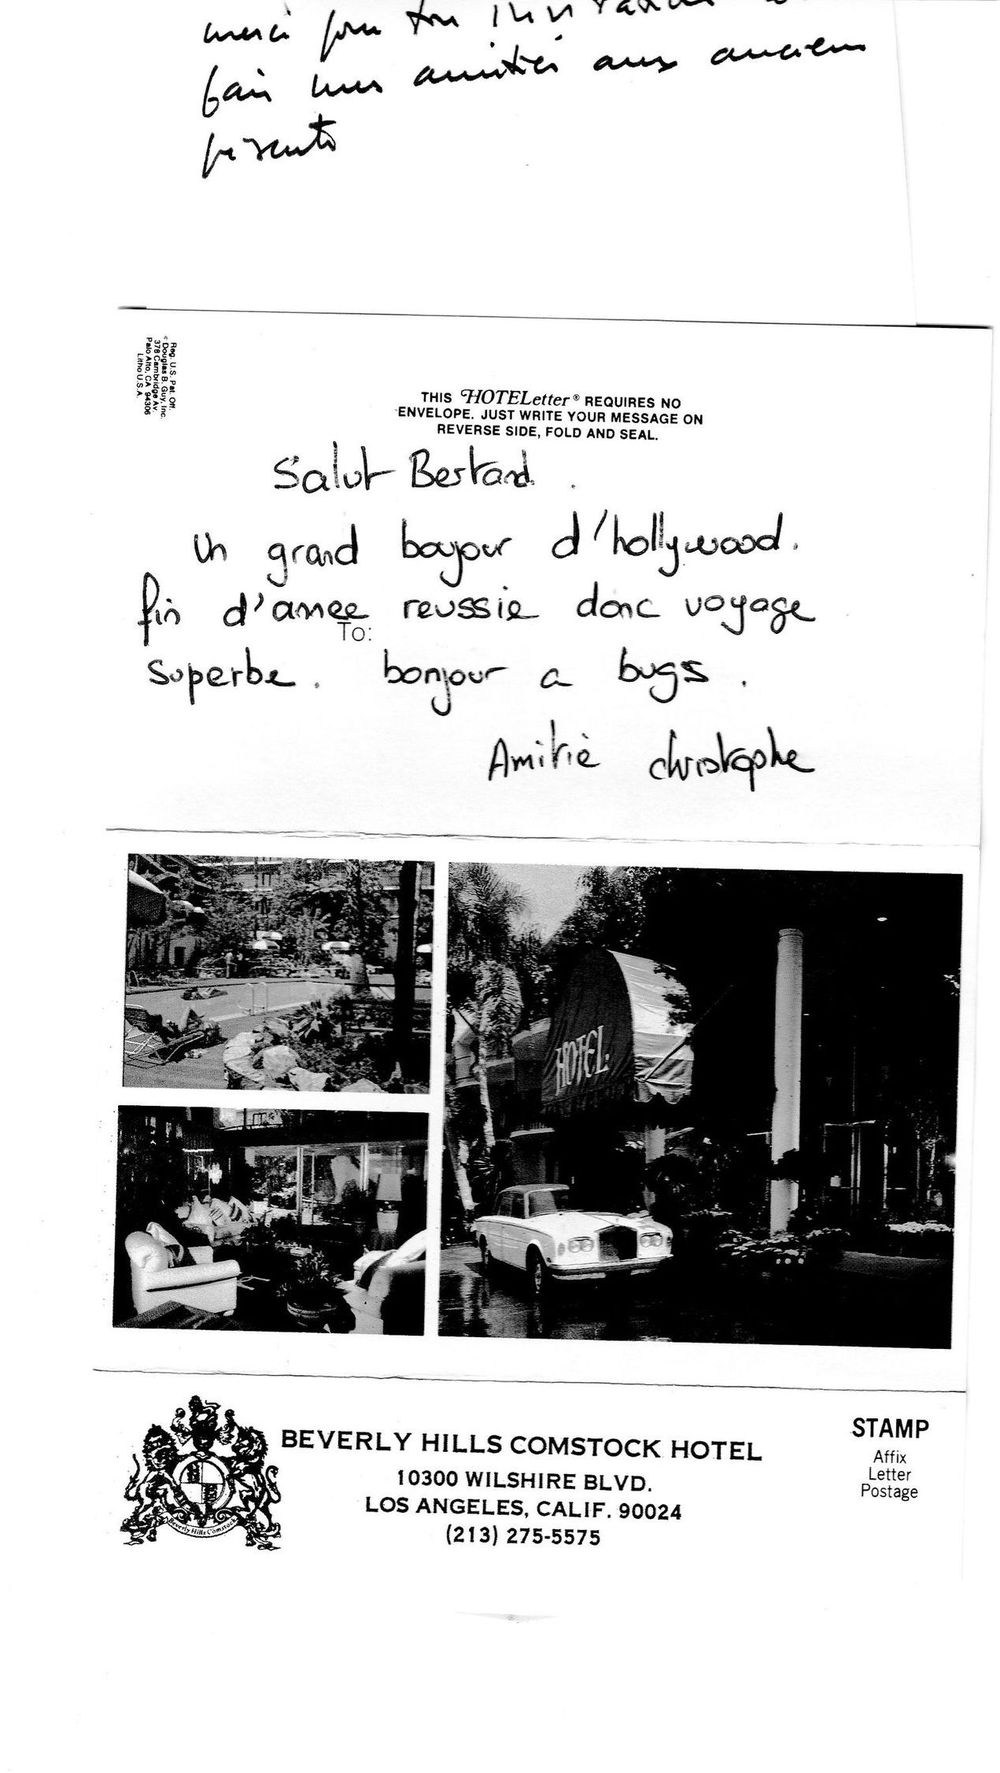 merci pour ton invitation
fais mes amitiés aux anciens
présents
Reg. U.S. Pat. Off.
© Douglas B. Guy, Inc.
378 Cambridge Av.
Palo Alto, CA 94306
Litho U.S.A.
THIS HOTELetter® REQUIRES NO
ENVELOPE. JUST WRITE YOUR MESSAGE ON
REVERSE SIDE, FOLD AND SEAL.
Salut Bertand.
Un grand boujour d'hollywood.
fin d'annee reussie donc voyage
To:
superbe. bonjour a bugs.
Amitiè christophe
HOTEL
BEVERLY HILLS COMSTOCK HOTEL
10300 WILSHIRE BLVD.
LOS ANGELES, CALIF. 90024
(213) 275-5575
Beverly Hills Comstock
STAMP
Affix
Letter
Postage